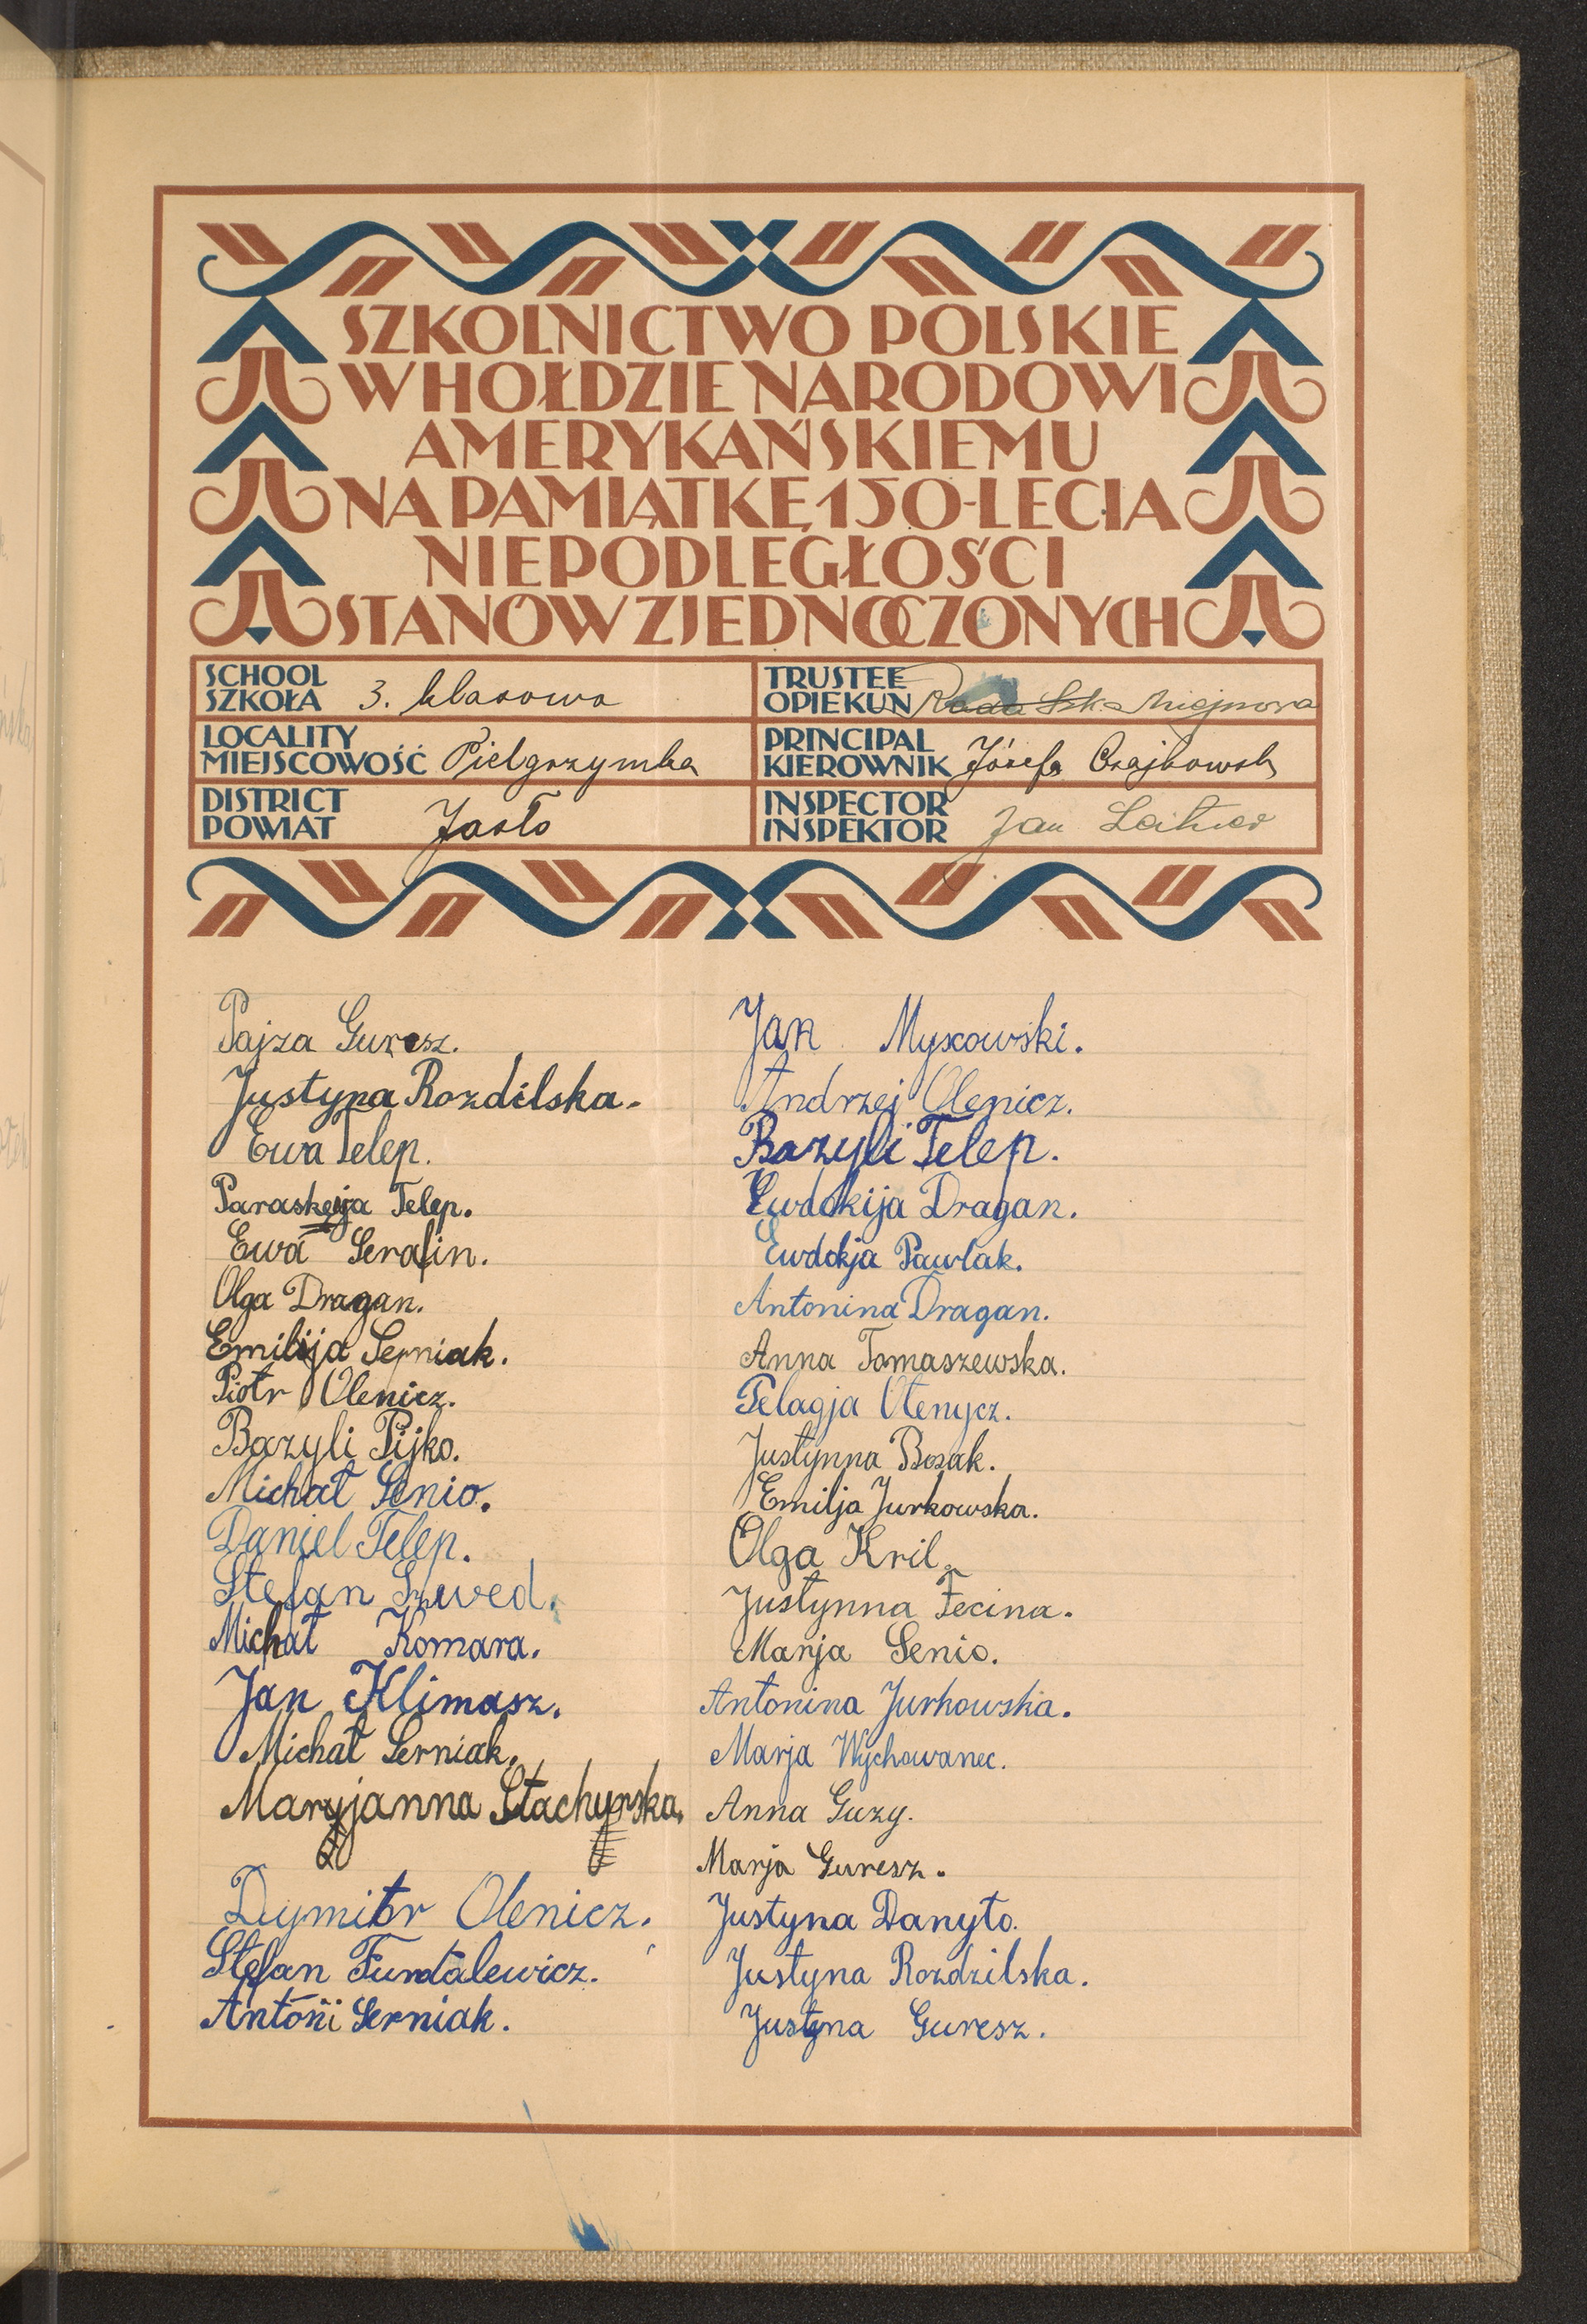 SZKOLNICTWO POLSKIE
W HOŁDZIE NARODOWI
AMERYKAŃSKIEMU
NA PAMIĄTKĘ 150-LECIA
NIEPODLEGŁOŚCI
STANÓW ZJEDNOCZONYCH
SCHOOL
SZKOŁA 3. klasowa
TRUSTEE
OPIEKUN Rada Szk. Miejscowa
LOCALITY
MIEJSCOWOŚĆ Pielgrzymka
PRINCIPAL
KIEROWNIK Józefa Czajkowska
DISTRICT
POWIAT Jasło
INSPECTOR
INSPEKTOR Jan
Pajza Guresz.
Justyna Rozdilska.
Ewa Telep.
Paraskewja Telep.
Ewa Serafin.
Olga Dragan.
Emilija Serniak.
Piotr Olenicz.
Bazyli Pijko.
Michał Senio.
Daniel Telep.
Stefan Szwed.
Michał Komara.
Jan Klimasz.
Michał Serniak.
Maryjanna Stachyrska.
Dymitr Olenicz.
Stefan Fundalewicz.
Antoni Serniak.
Jan Myscowski.
Andrzej Olenicz.
Bazyli Telep.
Ewdokija Dragan.
Ewdokja Pawlak.
Antonina Dragan.
Anna Tomaszewska.
Pelagja Olenycz.
Justynna Bosak.
Emilja Jurkowska.
Olga Kril.
Justynna Fecina.
Marja Senio.
Antonina Jurkowska.
Marja Wychowanec.
Anna Guzy.
Marja Guresz.
Justyna Danyło.
Justyna Rozdzilska.
Justyna Guresz.